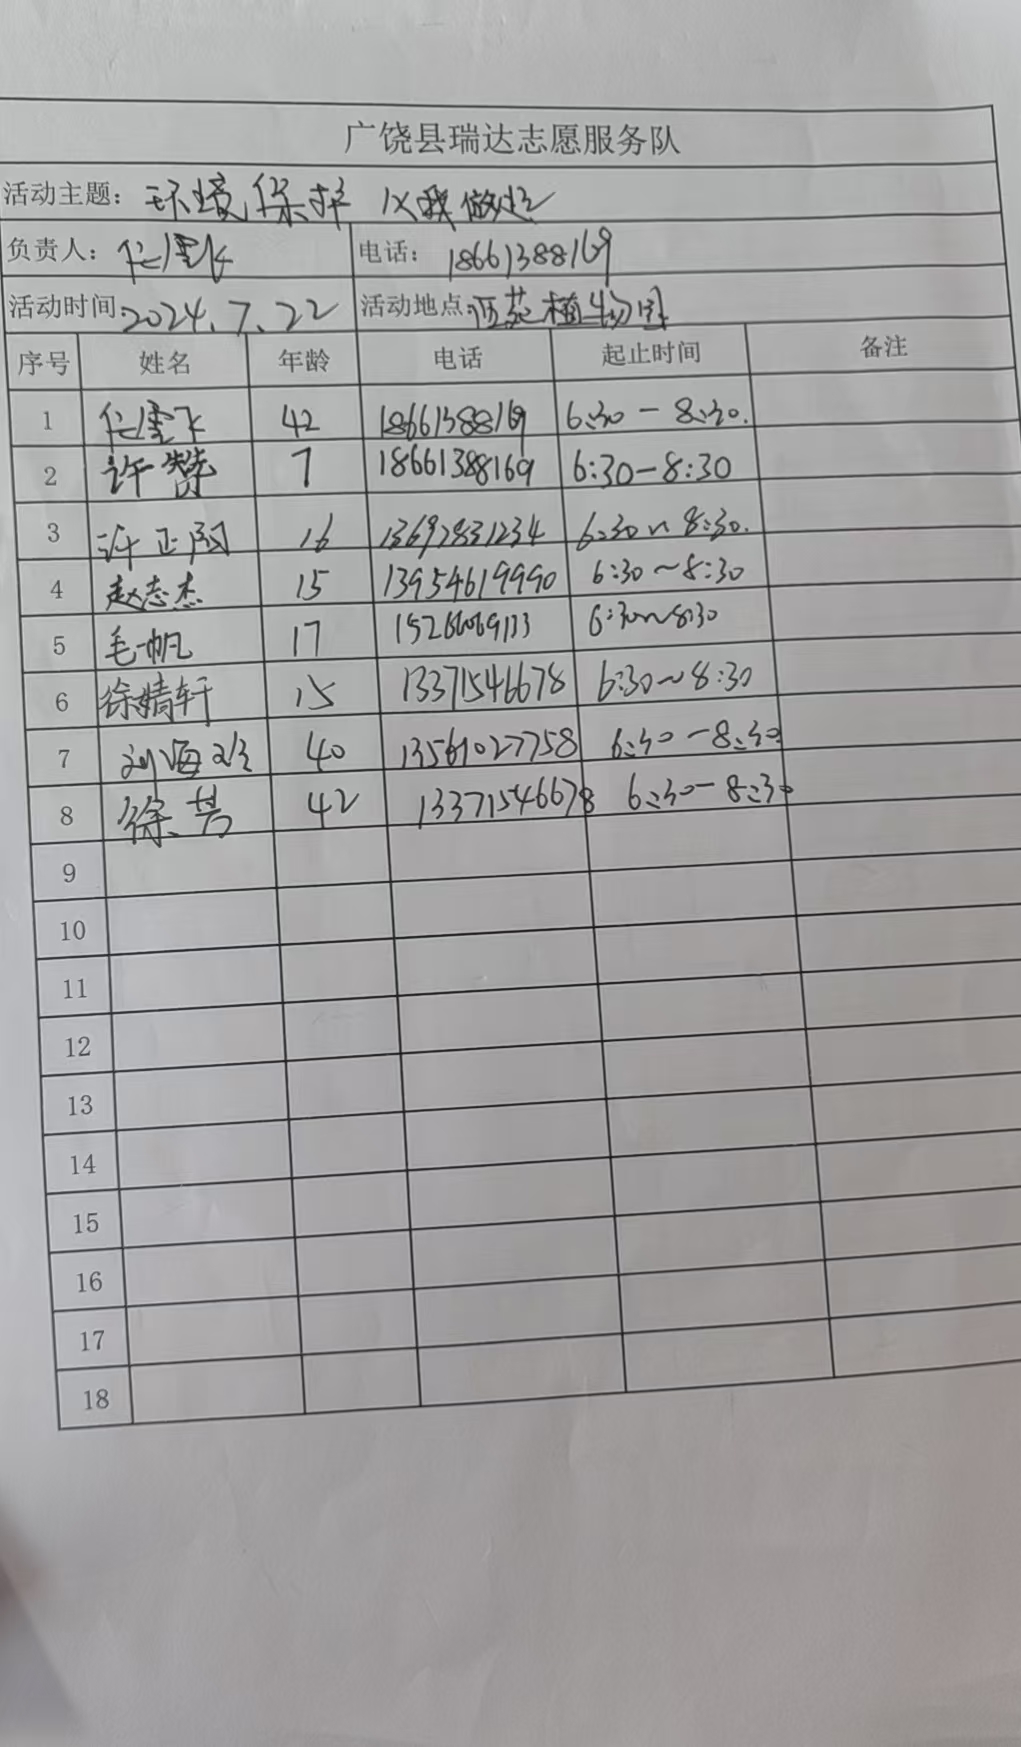 广饶县瑞达志愿服务队
活动主题: 环境保护 从我做起
负责人: 任雪飞 电话: 18661388169
活动时间: 2024.7.22 活动地点: 植物园
序号 姓名 年龄 电话 起止时间 备注
1 任雪飞 42 18661388169 6:30-8:30.
2 许赞 7 18661388169 6:30-8:30
3 许正阳 16 13692831234 6:30~8:30.
4 赵志杰 15 13954619990 6:30~8:30
5 毛一帆 17 6:30~8:30
6 徐婧轩 15 13371546678 6:30~8:30
7 刘海 40 13561027758 6:30-8:30
8 徐芳 42 13371546678 6:30-8:30
9
10
11
12
13
14
15
16
17
18